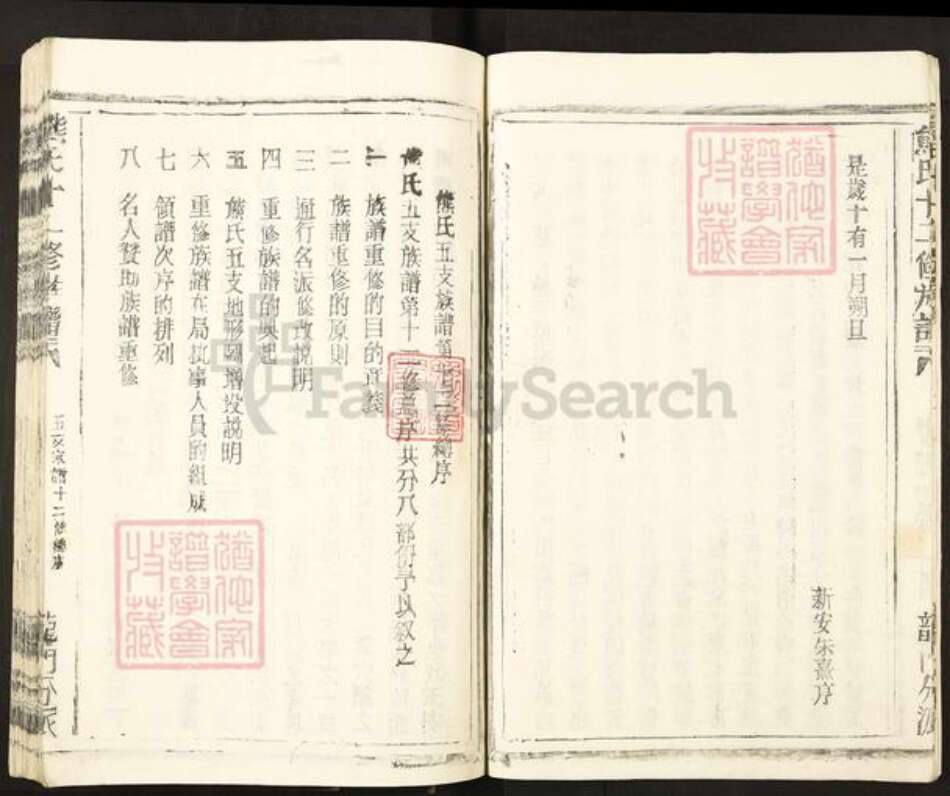 熊氏十二修族譜
龍門分派
是歲十有一月朔旦
新安朱熹序
熊氏五支族譜第十二修總序
熊氏五支族譜第十二修總序共分八部份予以叙之
一 族譜重修的目的意義
二 族譜重修的原則
三 通行名派修改說明
四 重修族譜的興起
五 熊氏五支地形圖增投說明
六 重修族譜在局执事人員的組成
七 領譜次序的排列
八 名人贊助族譜重修
五支宗譜十二修總序
龍門分派
FamilySearch
猶他家譜學會收藏
猶他家譜學會收藏